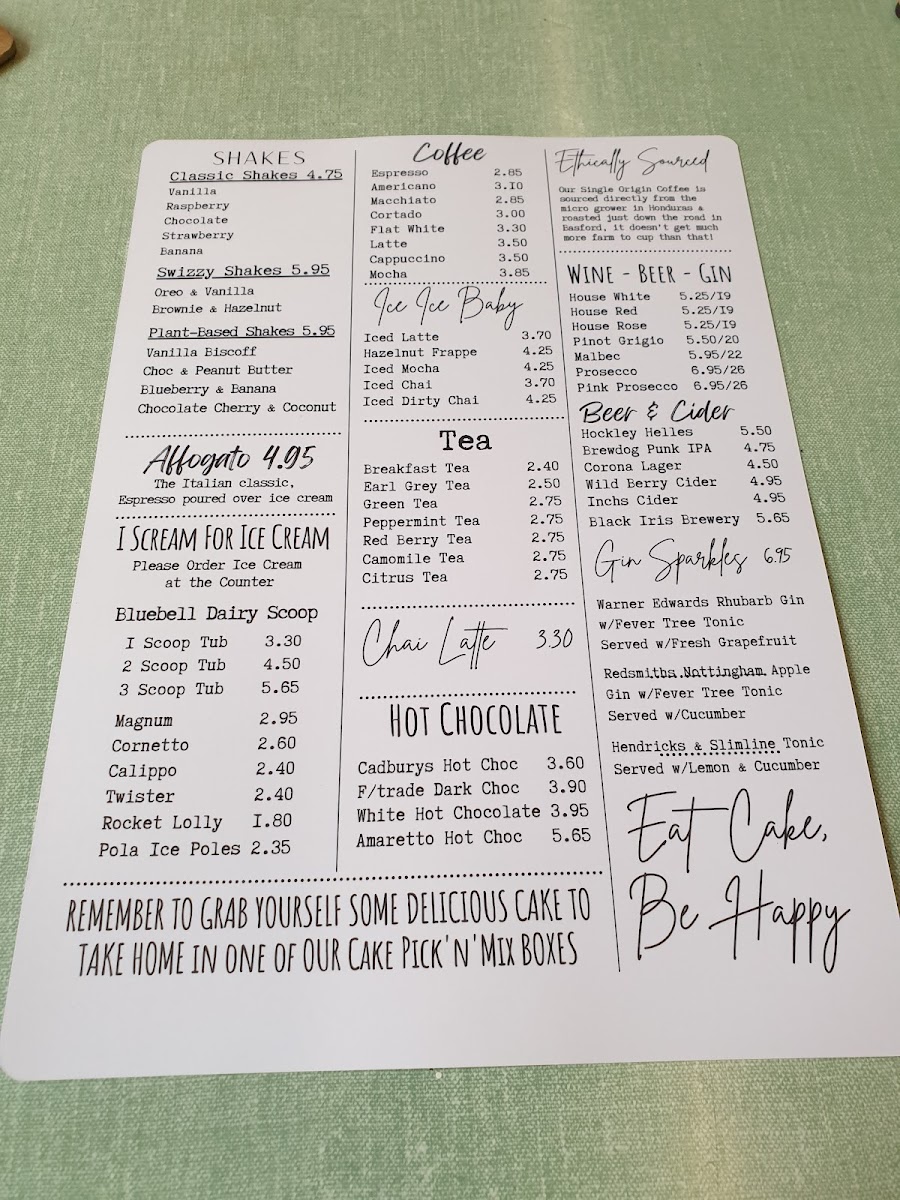 SHAKES
Classic Shakes 4.75
Vanilla
Raspberry
Chocolate
Strawberry
Banana
Swizzy Shakes 5.95
Oreo & Vanilla
Brownie & Hazelnut
Plant-Based Shakes 5.95
Vanilla Biscoff
Choc & Peanut Butter
Blueberry & Banana
Chocolate Cherry & Coconut
Affogato 4.95
The Italian classic,
Espresso poured over ice cream
I SCREAM FOR ICE CREAM
Please Order Ice Cream
at the Counter
Bluebell Dairy Scoop
I Scoop Tub 3.30
2 Scoop Tub 4.50
3 Scoop Tub 5.65
Magnum 2.95
Cornetto 2.60
Calippo 2.40
Twister 2.40
Rocket Lolly I.80
Pola Ice Poles 2.35
Coffee
Espresso 2.85
Americano 3.I0
Macchiato 2.85
Cortado 3.00
Flat White 3.30
Latte 3.50
Cappuccino 3.50
Mocha 3.85
Ice Ice Baby
Iced Latte 3.70
Hazelnut Frappe 4.25
Iced Mocha 4.25
Iced Chai 3.70
Iced Dirty Chai 4.25
Tea
Breakfast Tea 2.40
Earl Grey Tea 2.50
Green Tea 2.75
Peppermint Tea 2.75
Red Berry Tea 2.75
Camomile Tea 2.75
Citrus Tea 2.75
Chai Latte 3.30
HOT CHOCOLATE
Cadburys Hot Choc 3.60
F/trade Dark Choc 3.90
White Hot Chocolate 3.95
Amaretto Hot Choc 5.65
Ethically Sourced
Our Single Origin Coffee is
sourced directly from the
micro grower in Honduras &
roasted just down the road in
Basford, it doesn't get much
more farm to cup than that!
WINE - BEER - GIN
House White 5.25/I9
House Red 5.25/I9
House Rose 5.25/I9
Pinot Grigio 5.50/20
Malbec 5.95/22
Prosecco 6.95/26
Pink Prosecco 6.95/26
Beer & Cider
Hockley Helles 5.50
Brewdog Punk IPA 4.75
Corona Lager 4.50
Wild Berry Cider 4.95
Inchs Cider 4.95
Black Iris Brewery 5.65
Gin Sparkles 6.95
Warner Edwards Rhubarb Gin
w/Fever Tree Tonic
Served w/Fresh Grapefruit
Redsmiths Nottingham Apple
Gin w/Fever Tree Tonic
Served w/Cucumber
Hendricks & Slimline Tonic
Served w/Lemon & Cucumber
Eat Cake,
Be Happy
REMEMBER TO GRAB YOURSELF SOME DELICIOUS CAKE TO
TAKE HOME IN ONE OF OUR CAKE PICK'N'MIX BOXES